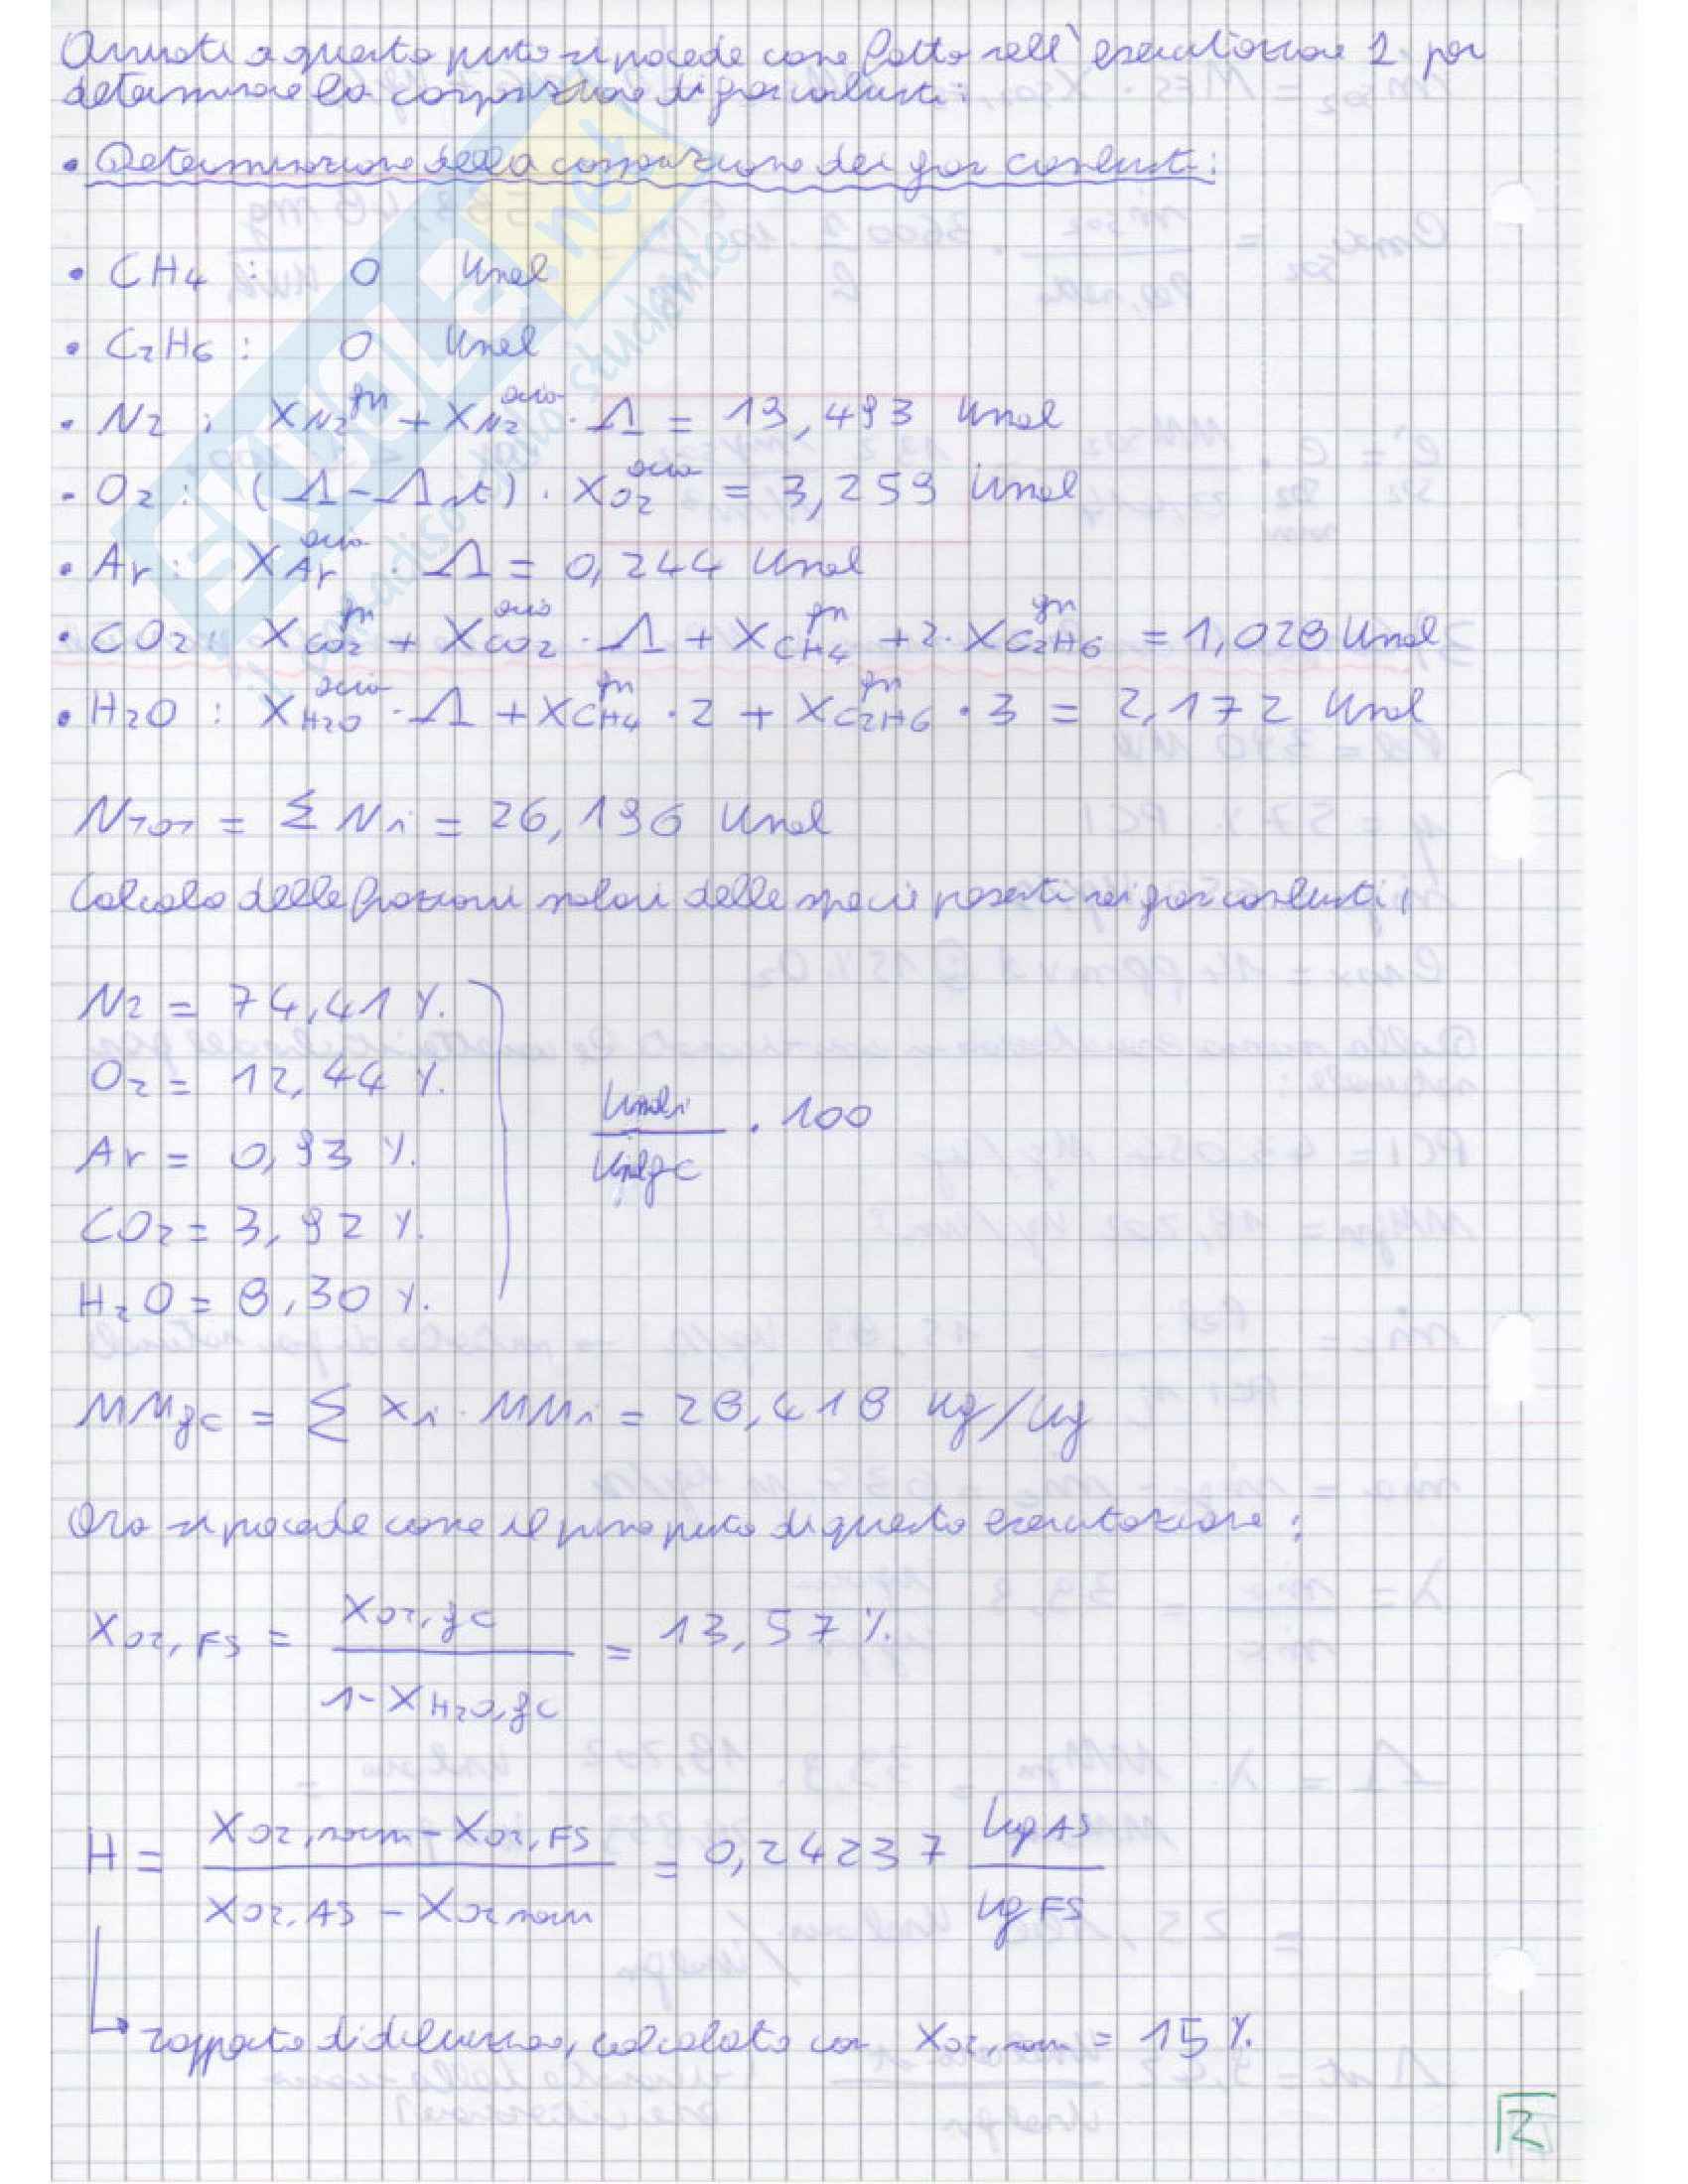 Arrivati a questo punto si procede come fatto nell'esercitazione 1 per
determinare la composizione di gas combusti:
• Determinazione della composizione dei gas combusti:
• CH4 : 0 kmol
• C2H6 : 0 kmol
• N2 : XN2^gn + XN2^aria · Λ = 19,493 kmol
• O2 : (Λ - Λst) · XO2^aria = 3,259 kmol
• Ar : XAr^aria · Λ = 0,244 kmol
• CO2 : XCO2^gn + XCO2^aria · Λ + XCH4^gn + 2 · XC2H6^gn = 1,028 kmol
• H2O : XH2O^aria · Λ + XCH4^gn · 2 + XC2H6^gn · 3 = 2,172 kmol
NTOT = Σ Ni = 26,196 kmol
Calcolo delle frazioni molari delle specie presenti nei gas combusti:
N2 = 74,41 %
O2 = 12,44 %
Ar = 0,93 %
kmoli / kmolgc · 100
CO2 = 3,92 %
H2O = 8,30 %
MMgc = Σ xi · MMi = 28,418 kg/kg
Ora si procede come il primo punto di questa esercitazione:
XO2,FS = XO2,gc / 1-XH2O,gc = 13,57 %
H = XO2,norm - XO2,FS / XO2,AS - XO2norm = 0,24237 kgAS / kgFS
↳ rapporto di diluizione, calcolato con XO2,nom = 15 %
2
SKUOLA.net
il paradiso dello studente